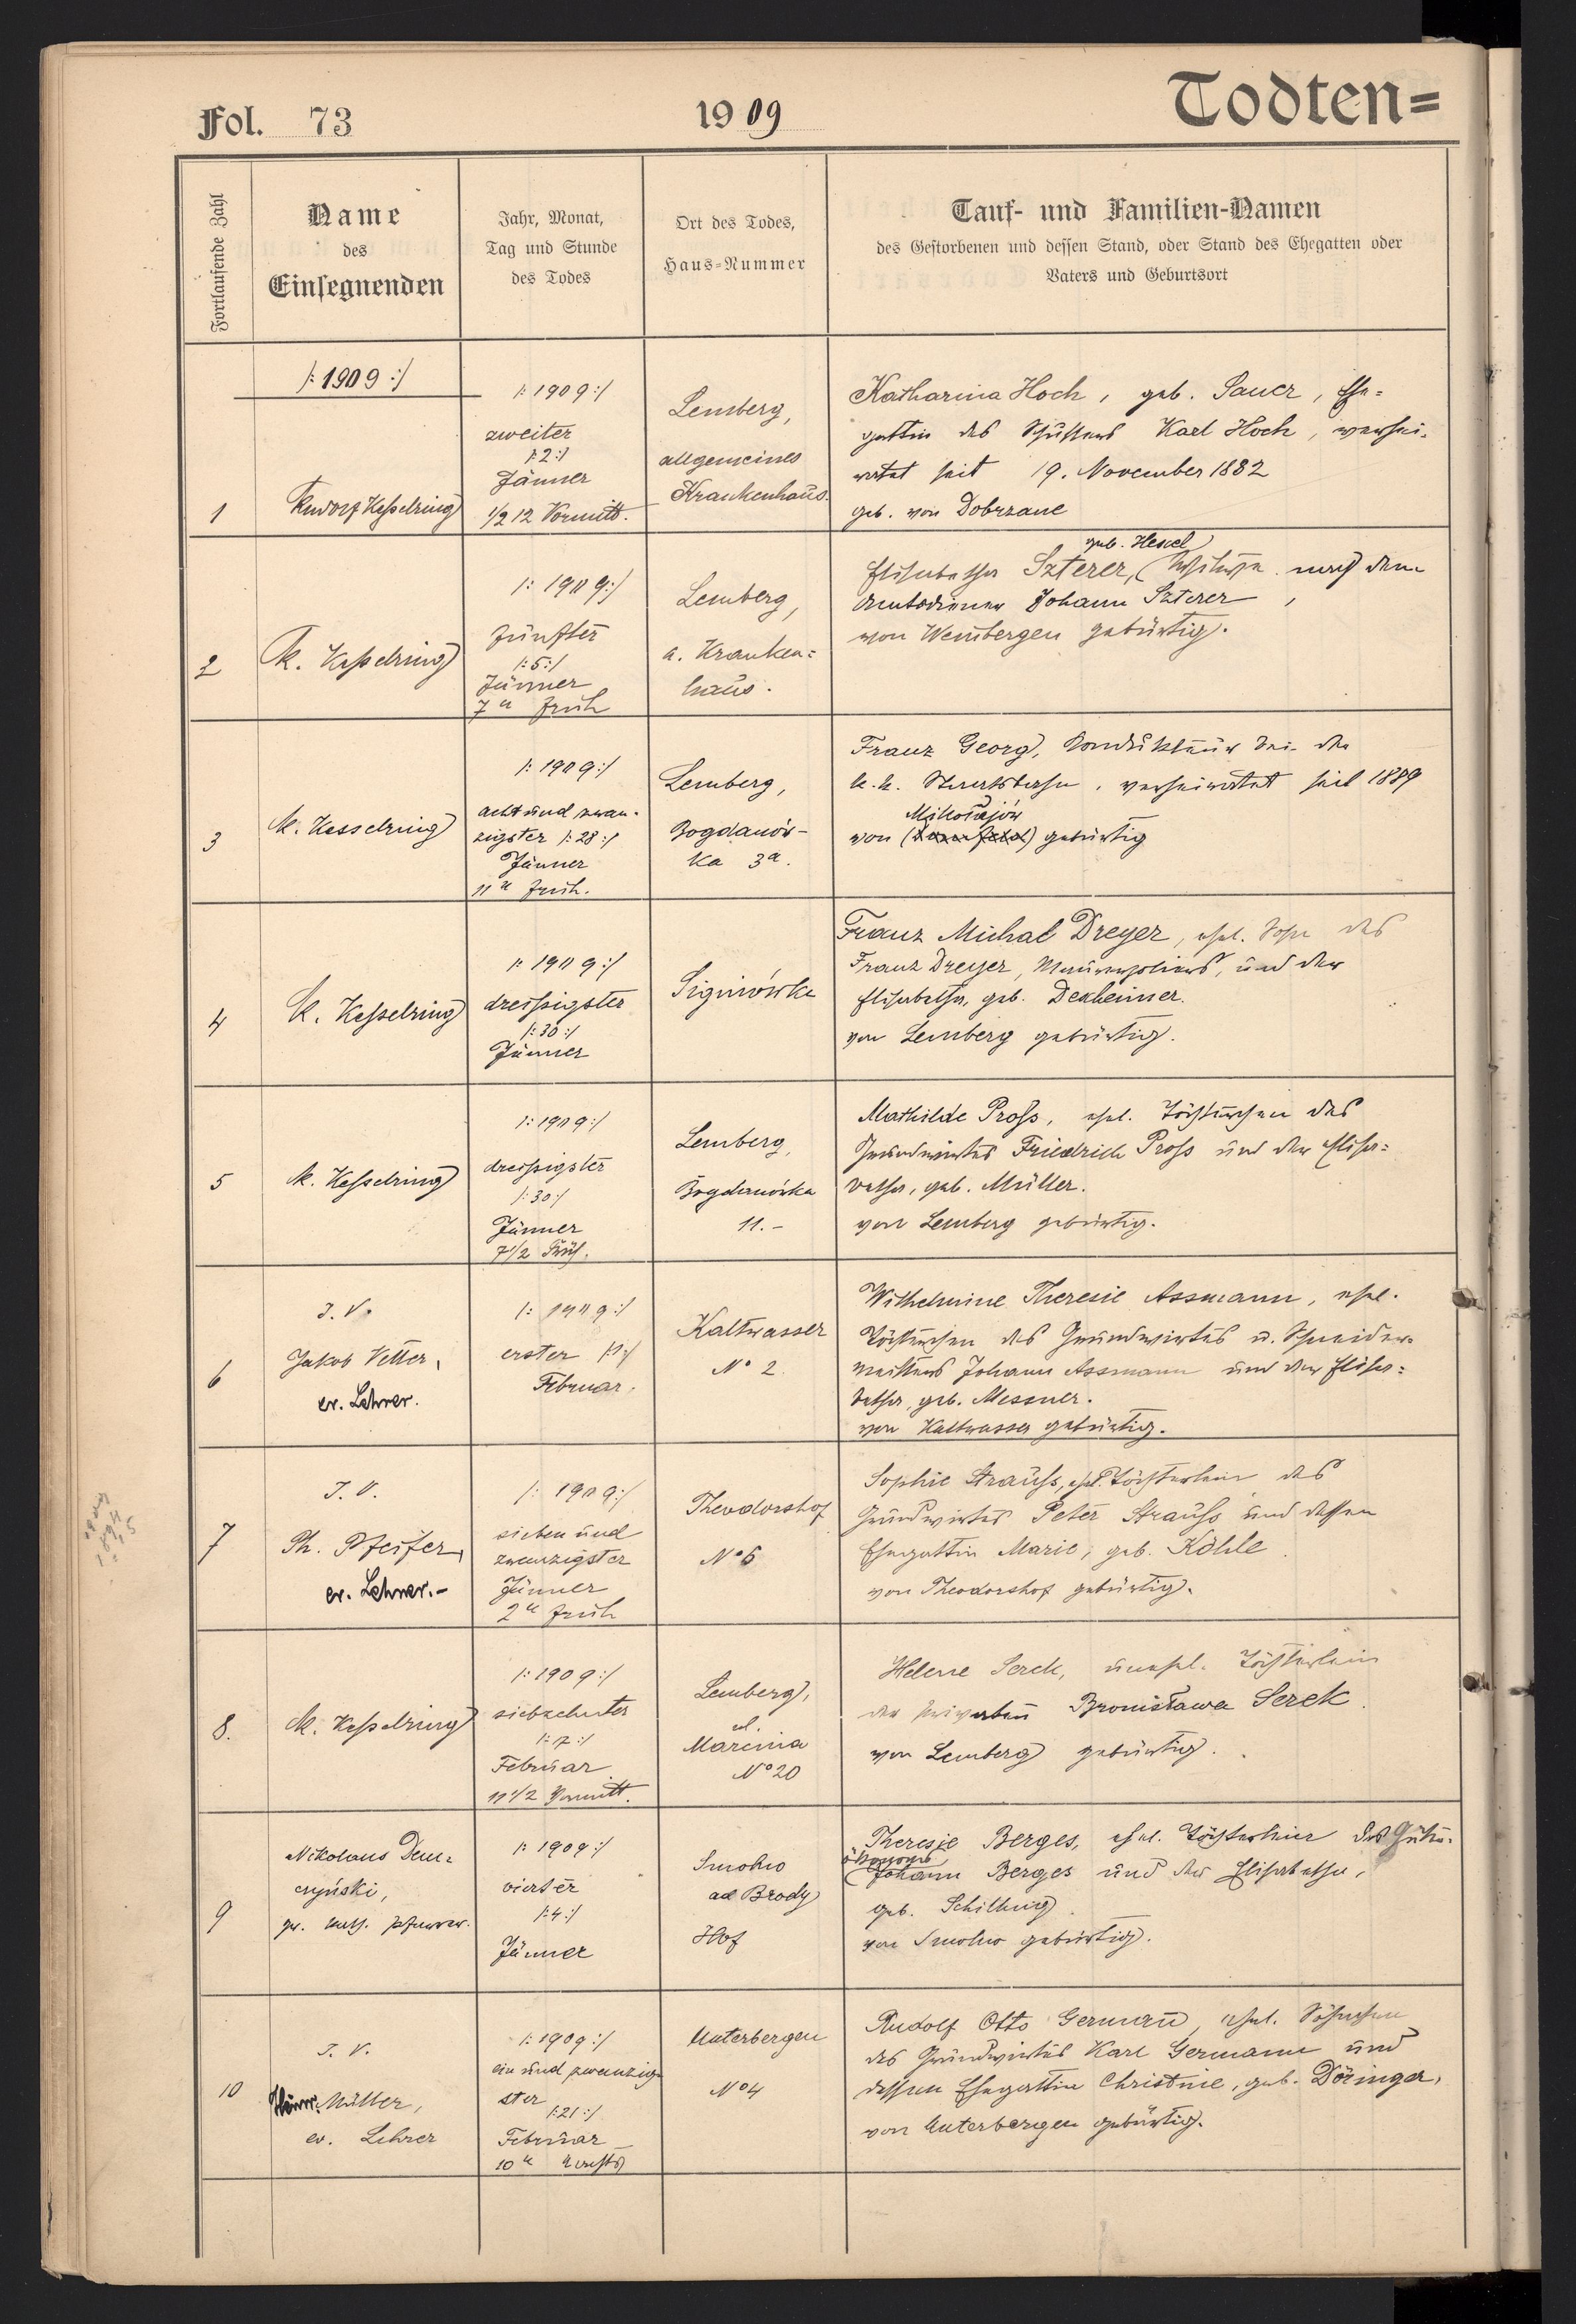 Fol. 73
1909
Todten=
Fortlaufende Zahl
Name
des
Einsegnenden
Jahr, Monat,
Tag und Stunde
des Todes
Ort des Todes,
Haus-Nummer
Tauf- und Familien-Namen
des Gestorbenen und dessen Stand, oder Stand des Ehegatten oder
Vaters und Geburtsort
/: 1909 :/
1
Kesselring
/: 1909 :/
zweiter
/: 2 :/
Jänner
1/2 12 Vormitt.
Lemberg,
allgemeines
Krankenhaus.
Katharina Hoch, geb. Sauer, Ehe=
gattin des Karl Hoch, verhei-
ratet seit 19. November 1882
geb. von Dobrzane
2
K. Kesselring
/: 1909 :/
fünfter
/: 5 :/
Jänner
7 u früh
Lemberg,
a. Kranken=
haus.
geb. Hexel
Elisabetha Szterer, ( nach dem
Amtsdiener Johann Szterer,
von Weinbergen gebürtig.
3
K. Kesselring
/: 1909 :/
acht und zwan-
zigster /: 28 :/
Jänner
11 u früh.
Lemberg,
Bogdanów-
ka 3a.
Franz Georg, Kondukteur bei der
k. k. Staatsbahn, verheiratet seit 1889
Mikołajów
von gebürtig
4
K. Kesselring
/: 1909 :/
dreissigster
/: 30 :/
Jänner
Signiówka
Franz Michal Dreyer, ehel. Sohn des
Franz Dreyer, und der
Elisabetha, geb. Dexheimer.
von Lemberg gebürtig.
5
K. Kesselring
/: 1909 :/
dreissigster
/: 30 :/
Jänner
7 1/2 Früh.
Lemberg,
Bogdanówka
11.-
Mathilde Pross, ehel. Töchterchen des
Grundwirtes Friedrich Pross und der Elisa=
betha, geb. Müller.
von Lemberg gebürtig.
6
I. V.
Jakob Vetter,
ev. Lehrer.
/: 1909 :/
erster /: 1 :/
Februar.
Kaltwasser
No 2.
Wilhelmine Theresie Assmann, ehel.
Töchterchen des Grundwirtes u. Schneider-
meisters Johann Assmann und der Elisa=
betha, geb. Messner.
von Kaltwasser gebürtig.
7
I. V.
Ph. Pfeifer,
ev. Lehrer.-
/: 1909 :/
sieben und
zwanzigster
Jänner
2 u früh
Theodorshof
No 6
Sophie Strauss, ehel. Töchterlein des
Grundwirtes Peter Strauss und dessen
Ehegattin Marie, geb. Köhle.
von Theodorshof gebürtig.
8.
K. Kesselring
/: 1909 :/
siebzehnter
/: 17 :/
Februar
11 1/2 Vormitt.
Lemberg,
ul.
Marcina
No 20
Helene Serek, unehel. Töchterlein
der Privaten Bronisława Serek.
von Lemberg gebürtig.
9
Nikolaus Dem=
czyński,
gr. kath. Pfarrer.
/: 1909 :/
vierter
/: 4 :/
Jänner
Smolno
ad Brody
Hof
Theresie Berges, ehel. Töchterlein des Guts-
ökonoms
Johann Berges und der Elisabetha,
geb. Schilling.
von Smolno gebürtig.
10
I. V.
Müller,
ev. Lehrer
/: 1909 :/
ein und zwanzig-
ster
/: 21 :/
Februar
10 u Nachts
Unterbergen
No 4
Rudolf Otto Germann, ehel. Söhnchen
des Grundwirtes Karl Germann und
dessen Ehegattin Christine, geb. Döringer,
von Unterbergen gebürtig.